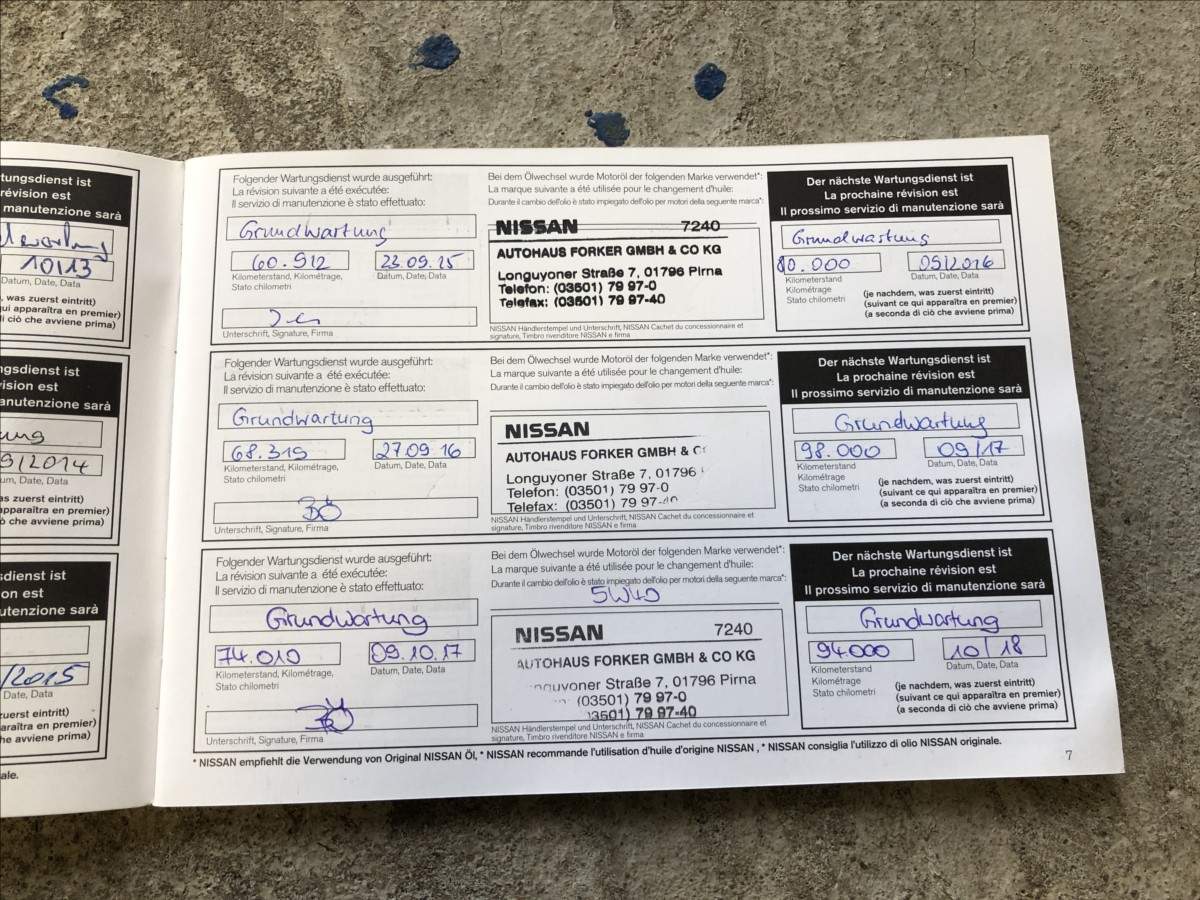 artungsdienst ist
révision est
manutenzione sarà
10/13
Datum, Date, Data
, was zuerst eintritt)
qui apparaîtra en premier)
di ciò che avviene prima)
ngsdienst ist
ision est
anutenzione sarà
ung
9/2014
um, Date, Data
as zuerst eintritt)
apparaîtra en premier)
ò che avviene prima)
sdienst ist
on est
utenzione sarà
/2015
Date, Data
zuerst eintritt)
araîtra en premier)
he avviene prima)
ale.
Folgender Wartungsdienst wurde ausgeführt:
La révision suivante a été exécutée:
Il servizio di manutenzione è stato effettuato:
Grundwartung
60.912 23.09.15
Kilometerstand, Kilométrage,
Stato chilometri
Datum, Date, Data
Unterschrift, Signature, Firma
Bei dem Ölwechsel wurde Motoröl der folgenden Marke verwendet*:
La marque suivante a été utilisée pour le changement d'huile:
Durante il cambio dell'olio è stato impiegato dell'olio per motori della seguente marca*:
NISSAN 7240
AUTOHAUS FORKER GMBH & CO KG
Longuyoner Straße 7, 01796 Pirna
Telefon: (03501) 79 97-0
Telefax: (03501) 79 97-40
NISSAN Händlerstempel und Unterschrift, NISSAN Cachet du concessionnaire et
signature, Timbro rivenditore NISSAN e firma
Der nächste Wartungsdienst ist
La prochaine révision est
Il prossimo servizio di manutenzione sarà
Grundwartung
80.000 09/2016
Kilometerstand
Kilométrage
Stato chilometri
Datum, Date, Data
(je nachdem, was zuerst eintritt)
(suivant ce qui apparaîtra en premier)
(a seconda di ciò che avviene prima)
Folgender Wartungsdienst wurde ausgeführt:
La révision suivante a été exécutée:
Il servizio di manutenzione è stato effettuato:
Grundwartung
68.319 27.09.16
Kilometerstand, Kilométrage,
Stato chilometri
Datum, Date, Data
Unterschrift, Signature, Firma
Bei dem Ölwechsel wurde Motoröl der folgenden Marke verwendet*:
La marque suivante a été utilisée pour le changement d'huile:
Durante il cambio dell'olio è stato impiegato dell'olio per motori della seguente marca*:
NISSAN
AUTOHAUS FORKER GMBH & C
Longuyoner Straße 7, 01796
Telefon: (03501) 79 97-0
Telefax: (03501) 79 97-40
NISSAN Händlerstempel und Unterschrift, NISSAN Cachet du concessionnaire et
signature, Timbro rivenditore NISSAN e firma
Der nächste Wartungsdienst ist
La prochaine révision est
Il prossimo servizio di manutenzione sarà
Grundwartung
98.000 09/17
Kilometerstand
Kilométrage
Stato chilometri
Datum, Date, Data
(je nachdem, was zuerst eintritt)
(suivant ce qui apparaîtra en premier)
(a seconda di ciò che avviene prima)
Folgender Wartungsdienst wurde ausgeführt:
La révision suivante a été exécutée:
Il servizio di manutenzione è stato effettuato:
Grundwartung
74.010 09.10.17
Kilometerstand, Kilométrage,
Stato chilometri
Datum, Date, Data
Unterschrift, Signature, Firma
Bei dem Ölwechsel wurde Motoröl der folgenden Marke verwendet*:
La marque suivante a été utilisée pour le changement d'huile:
Durante il cambio dell'olio è stato impiegato dell'olio per motori della seguente marca*:
5W40
NISSAN 7240
AUTOHAUS FORKER GMBH & CO KG
nguyoner Straße 7, 01796 Pirna
(03501) 79 97-0
03501) 79 97-40
NISSAN Händlerstempel und Unterschrift, NISSAN Cachet du concessionnaire et
signature, Timbro rivenditore NISSAN e firma
Der nächste Wartungsdienst ist
La prochaine révision est
Il prossimo servizio di manutenzione sarà
Grundwartung
94.000 10/18
Kilometerstand
Kilométrage
Stato chilometri
Datum, Date, Data
(je nachdem, was zuerst eintritt)
(suivant ce qui apparaîtra en premier)
(a seconda di ciò che avviene prima)
* NISSAN empfiehlt die Verwendung von Original NISSAN Öl, * NISSAN recommande l'utilisation d'huile d'origine NISSAN , * NISSAN consiglia l'utilizzo di olio NISSAN originale.
7